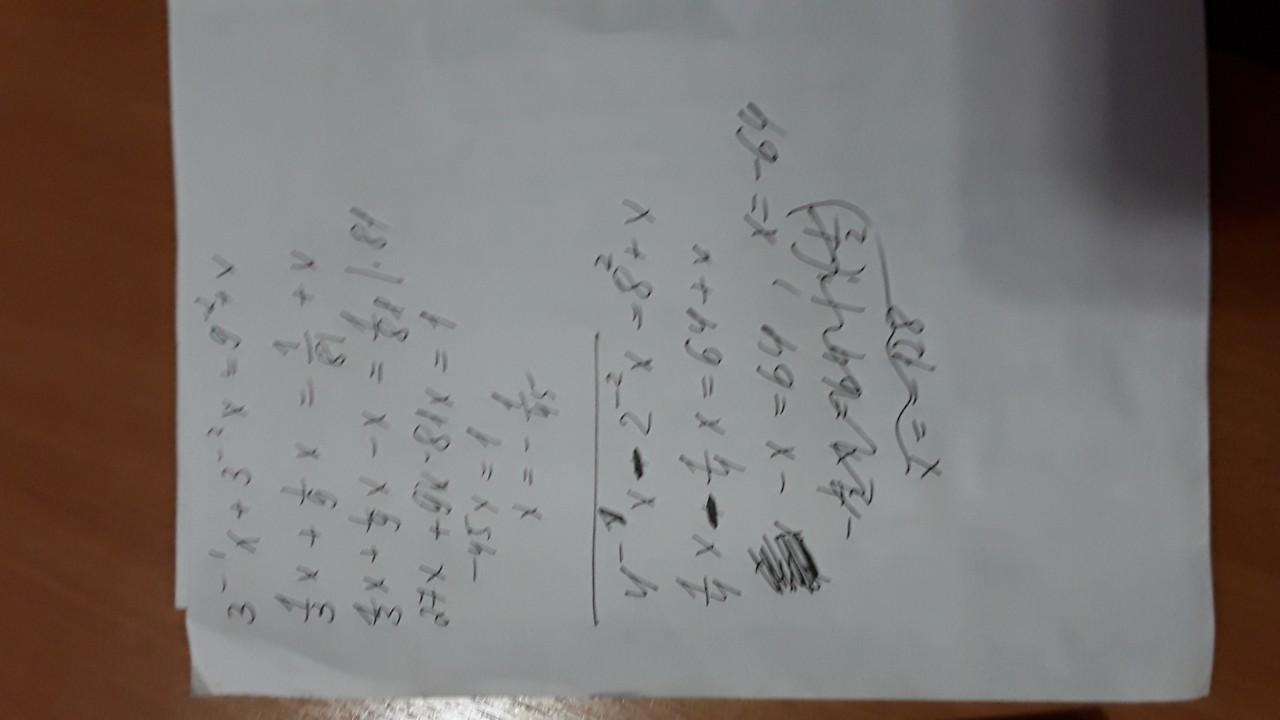 3⁻¹x + 3⁻²x = 9⁻²+x
1/3 x + 1/9 x = 1/81 + x
1/3 x + 1/9 x - x = 1/81 | · 81
27x + 9x - 81x = 1
-45x = 1
x = - 1/45
4⁻¹x - 2⁻²x = 8² + x
1/4 x - 1/4 x = 64 + x
- x = 64 , x = -64